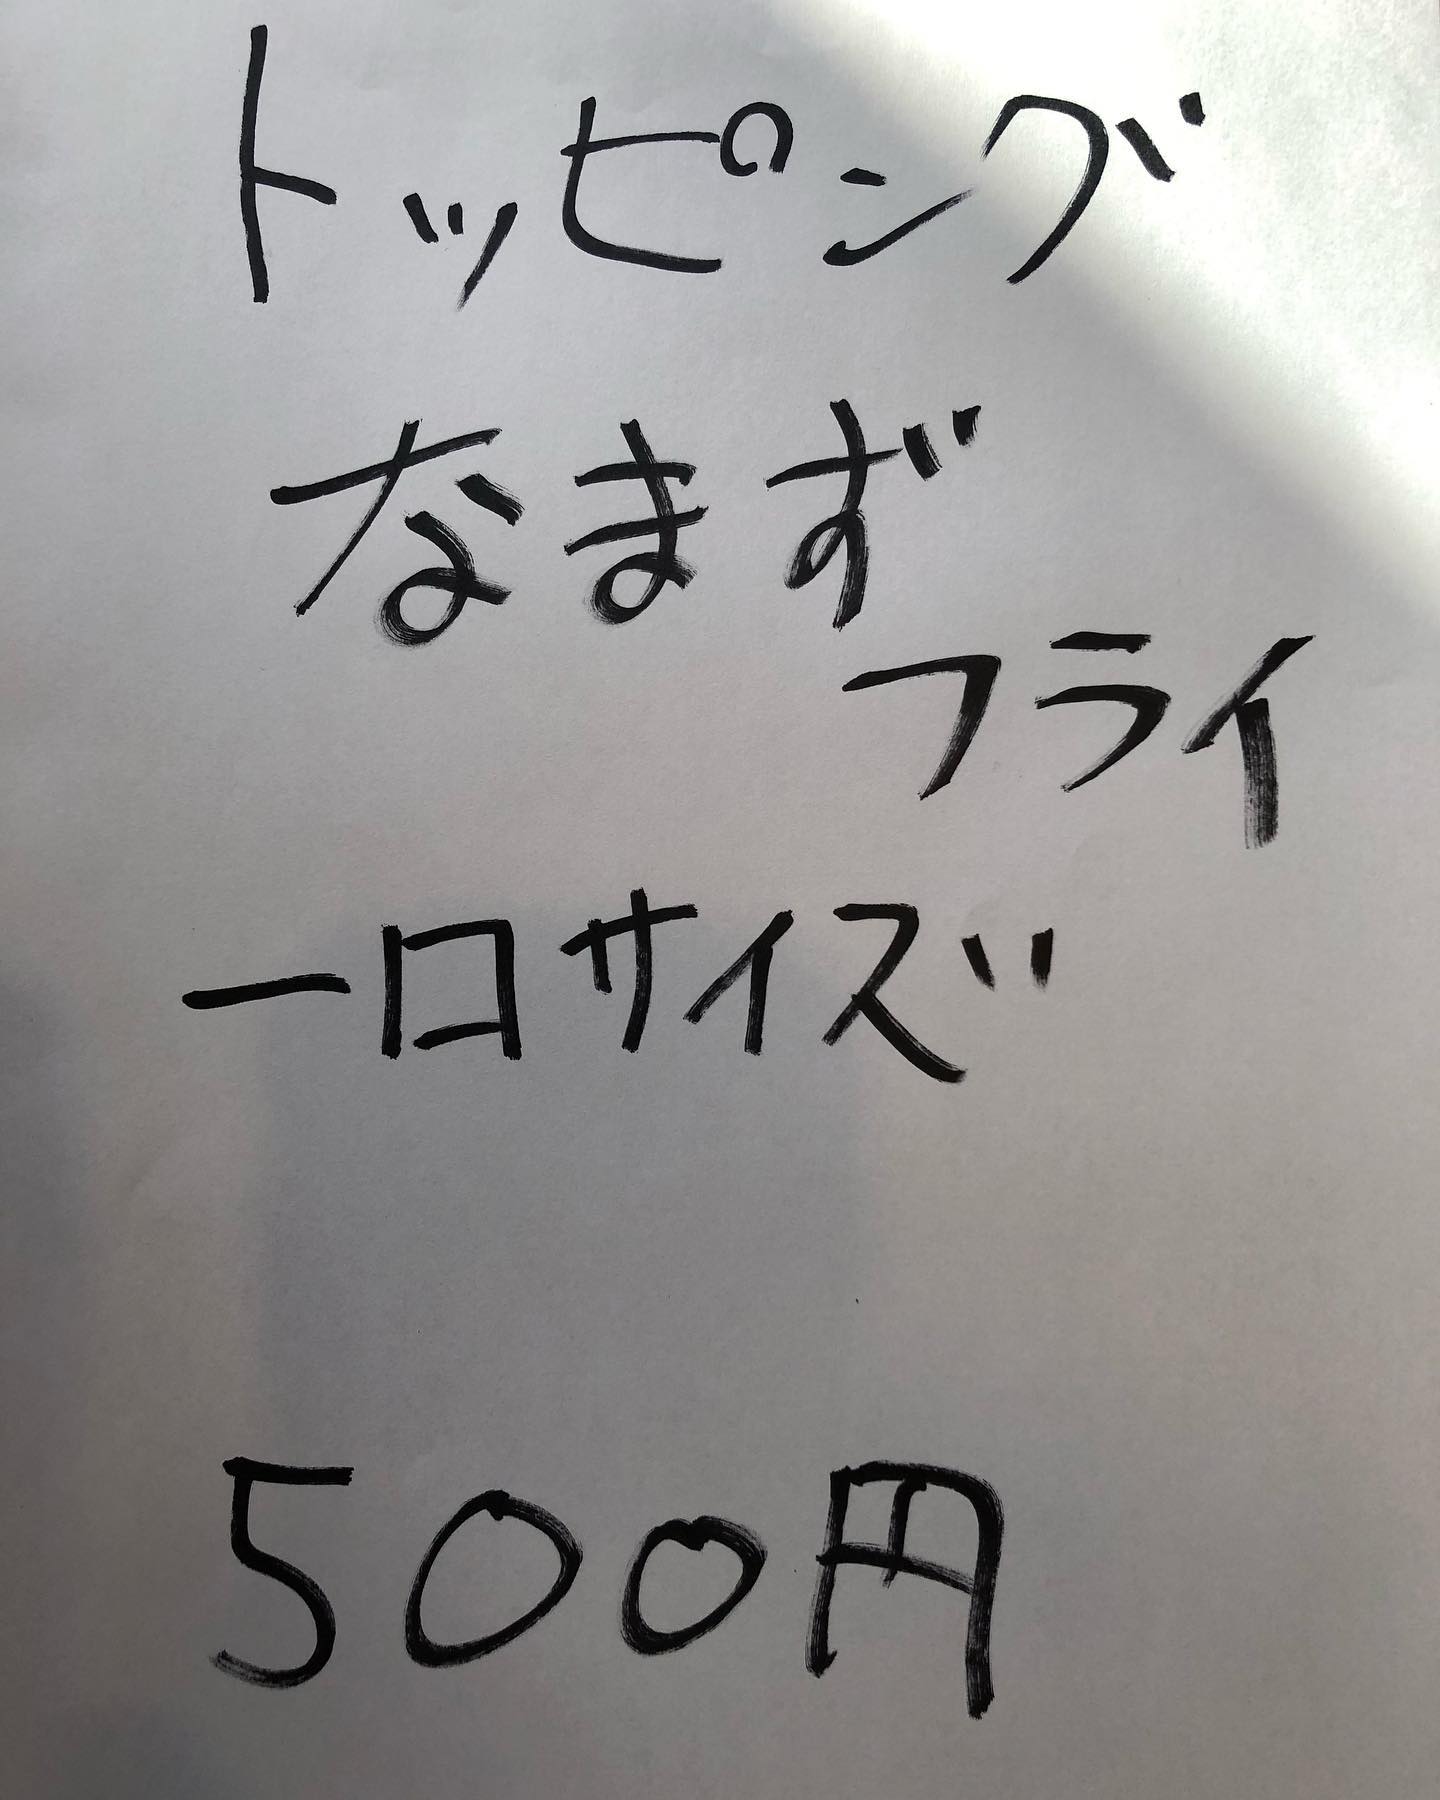 トッピング
なまず
フライ
一口サイズ
500円